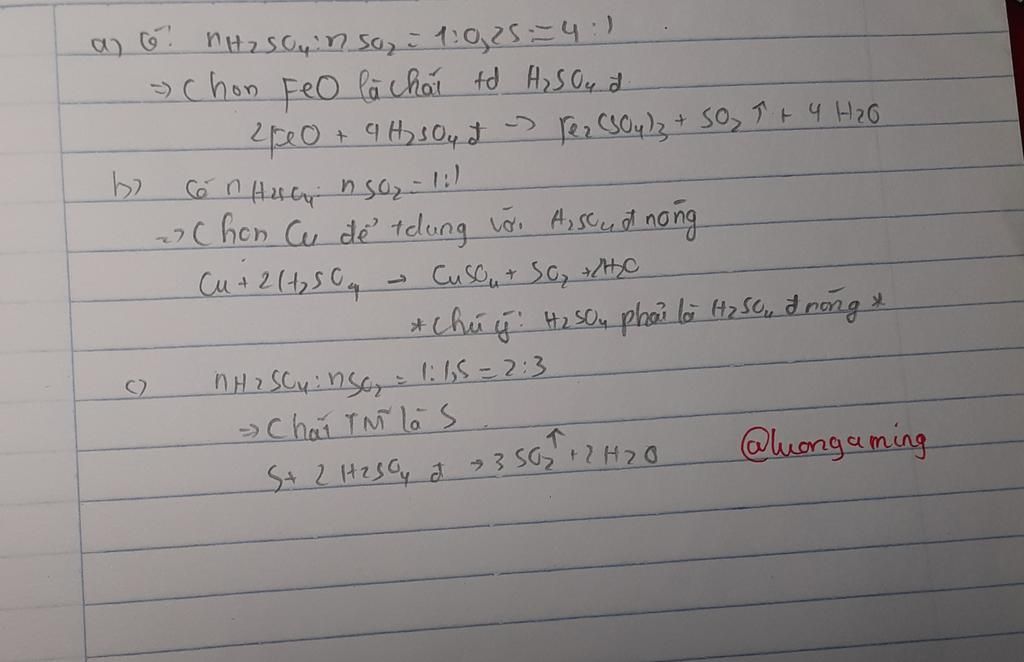 a) Có: nH2SO4 : nSO2 = 1:0,25 = 4:1
=> Chọn FeO là chất td H2SO4 đ
2FeO + 4H2SO4 đ -> Fe2(SO4)3 + SO2↑ + 4H2O
b) Có nH2SO4: nSO2 = 1:1
=> Chọn Cu để tdụng với H2SO4 đ nóng
Cu + 2H2SO4 → CuSO4 + SO2 + 2H2O
*Chú ý: H2SO4 phải là H2SO4 đ nóng*
c) nH2SO4: nSO2 = 1:1,5 = 2:3
=> Chất TM là S
S + 2H2SO4 đ → 3SO2↑ + 2H2O
@luongaming